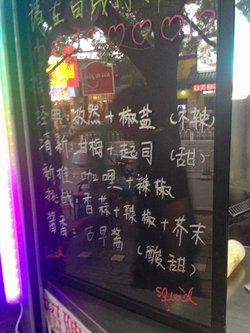 经典:孜然+椒盐(不辣)
清新:甘梅+起司(甜)
新推:咖喱+辣椒
挑战:香蒜+辣椒+芥末
酱香:古早酱(酸甜)
squid